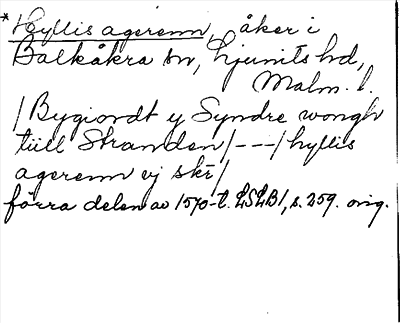 *Hyllis agerenn, åker i
Balkåkra sn, Ljunits hd,
Malm. l.
/Bygiordt y Syndre wongh
tüll Stranden/---/hyllis
agerenn ej skr/
förra delen av 1570-t. LSLB1, s. 259. orig.